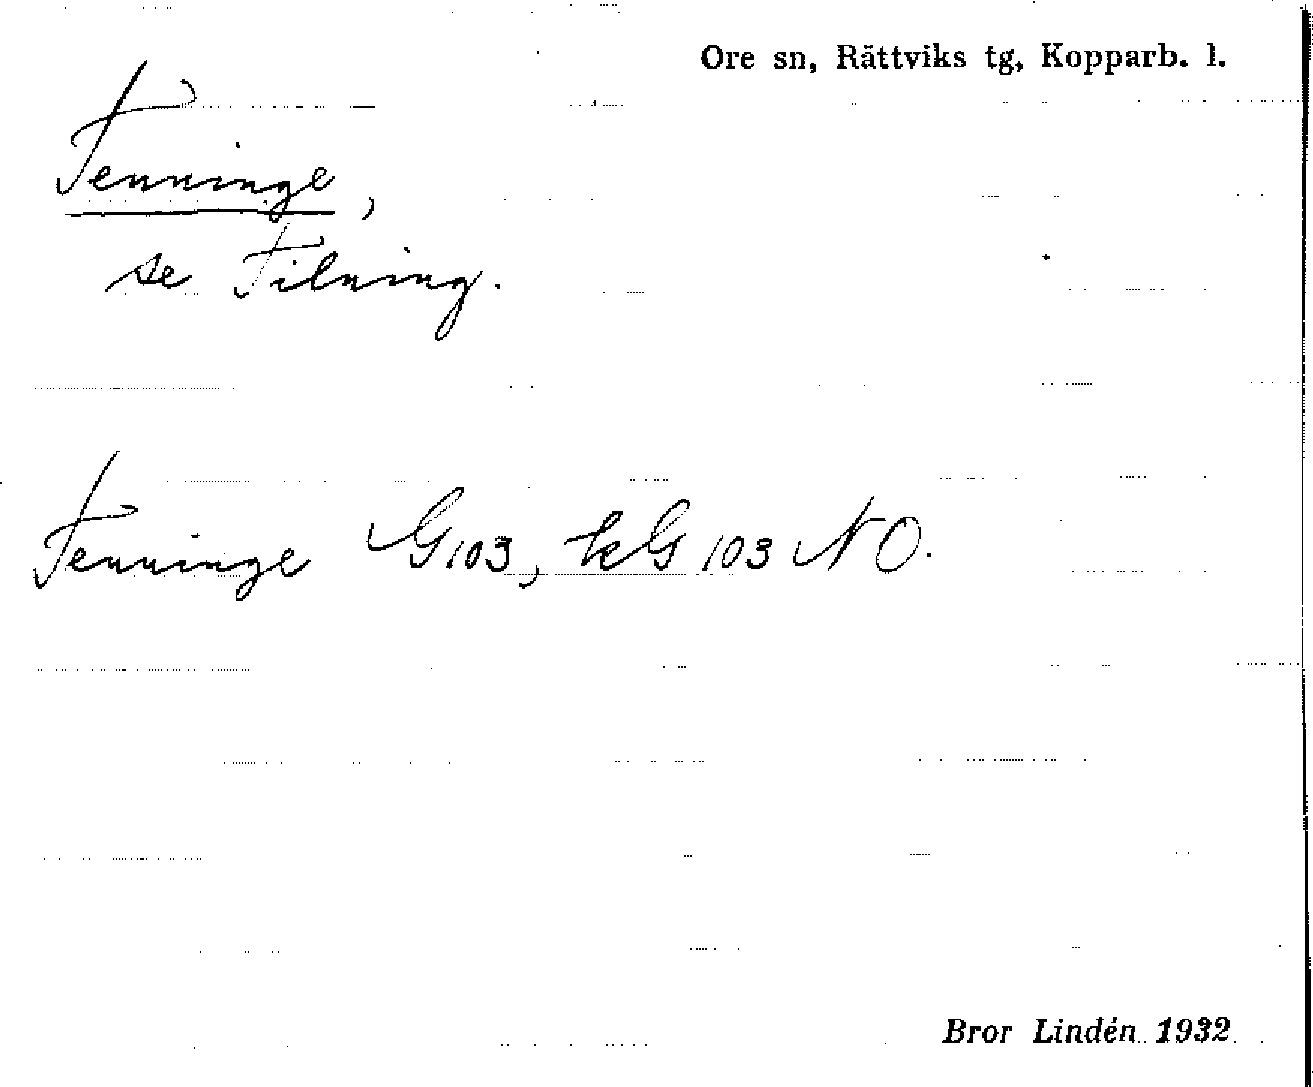 Ore sn, Rättviks tg, Kopparb. l.
Tenninge,
se Tilning.
Tenninge G 103, kG 103 NO.
Bror Lindén 1932